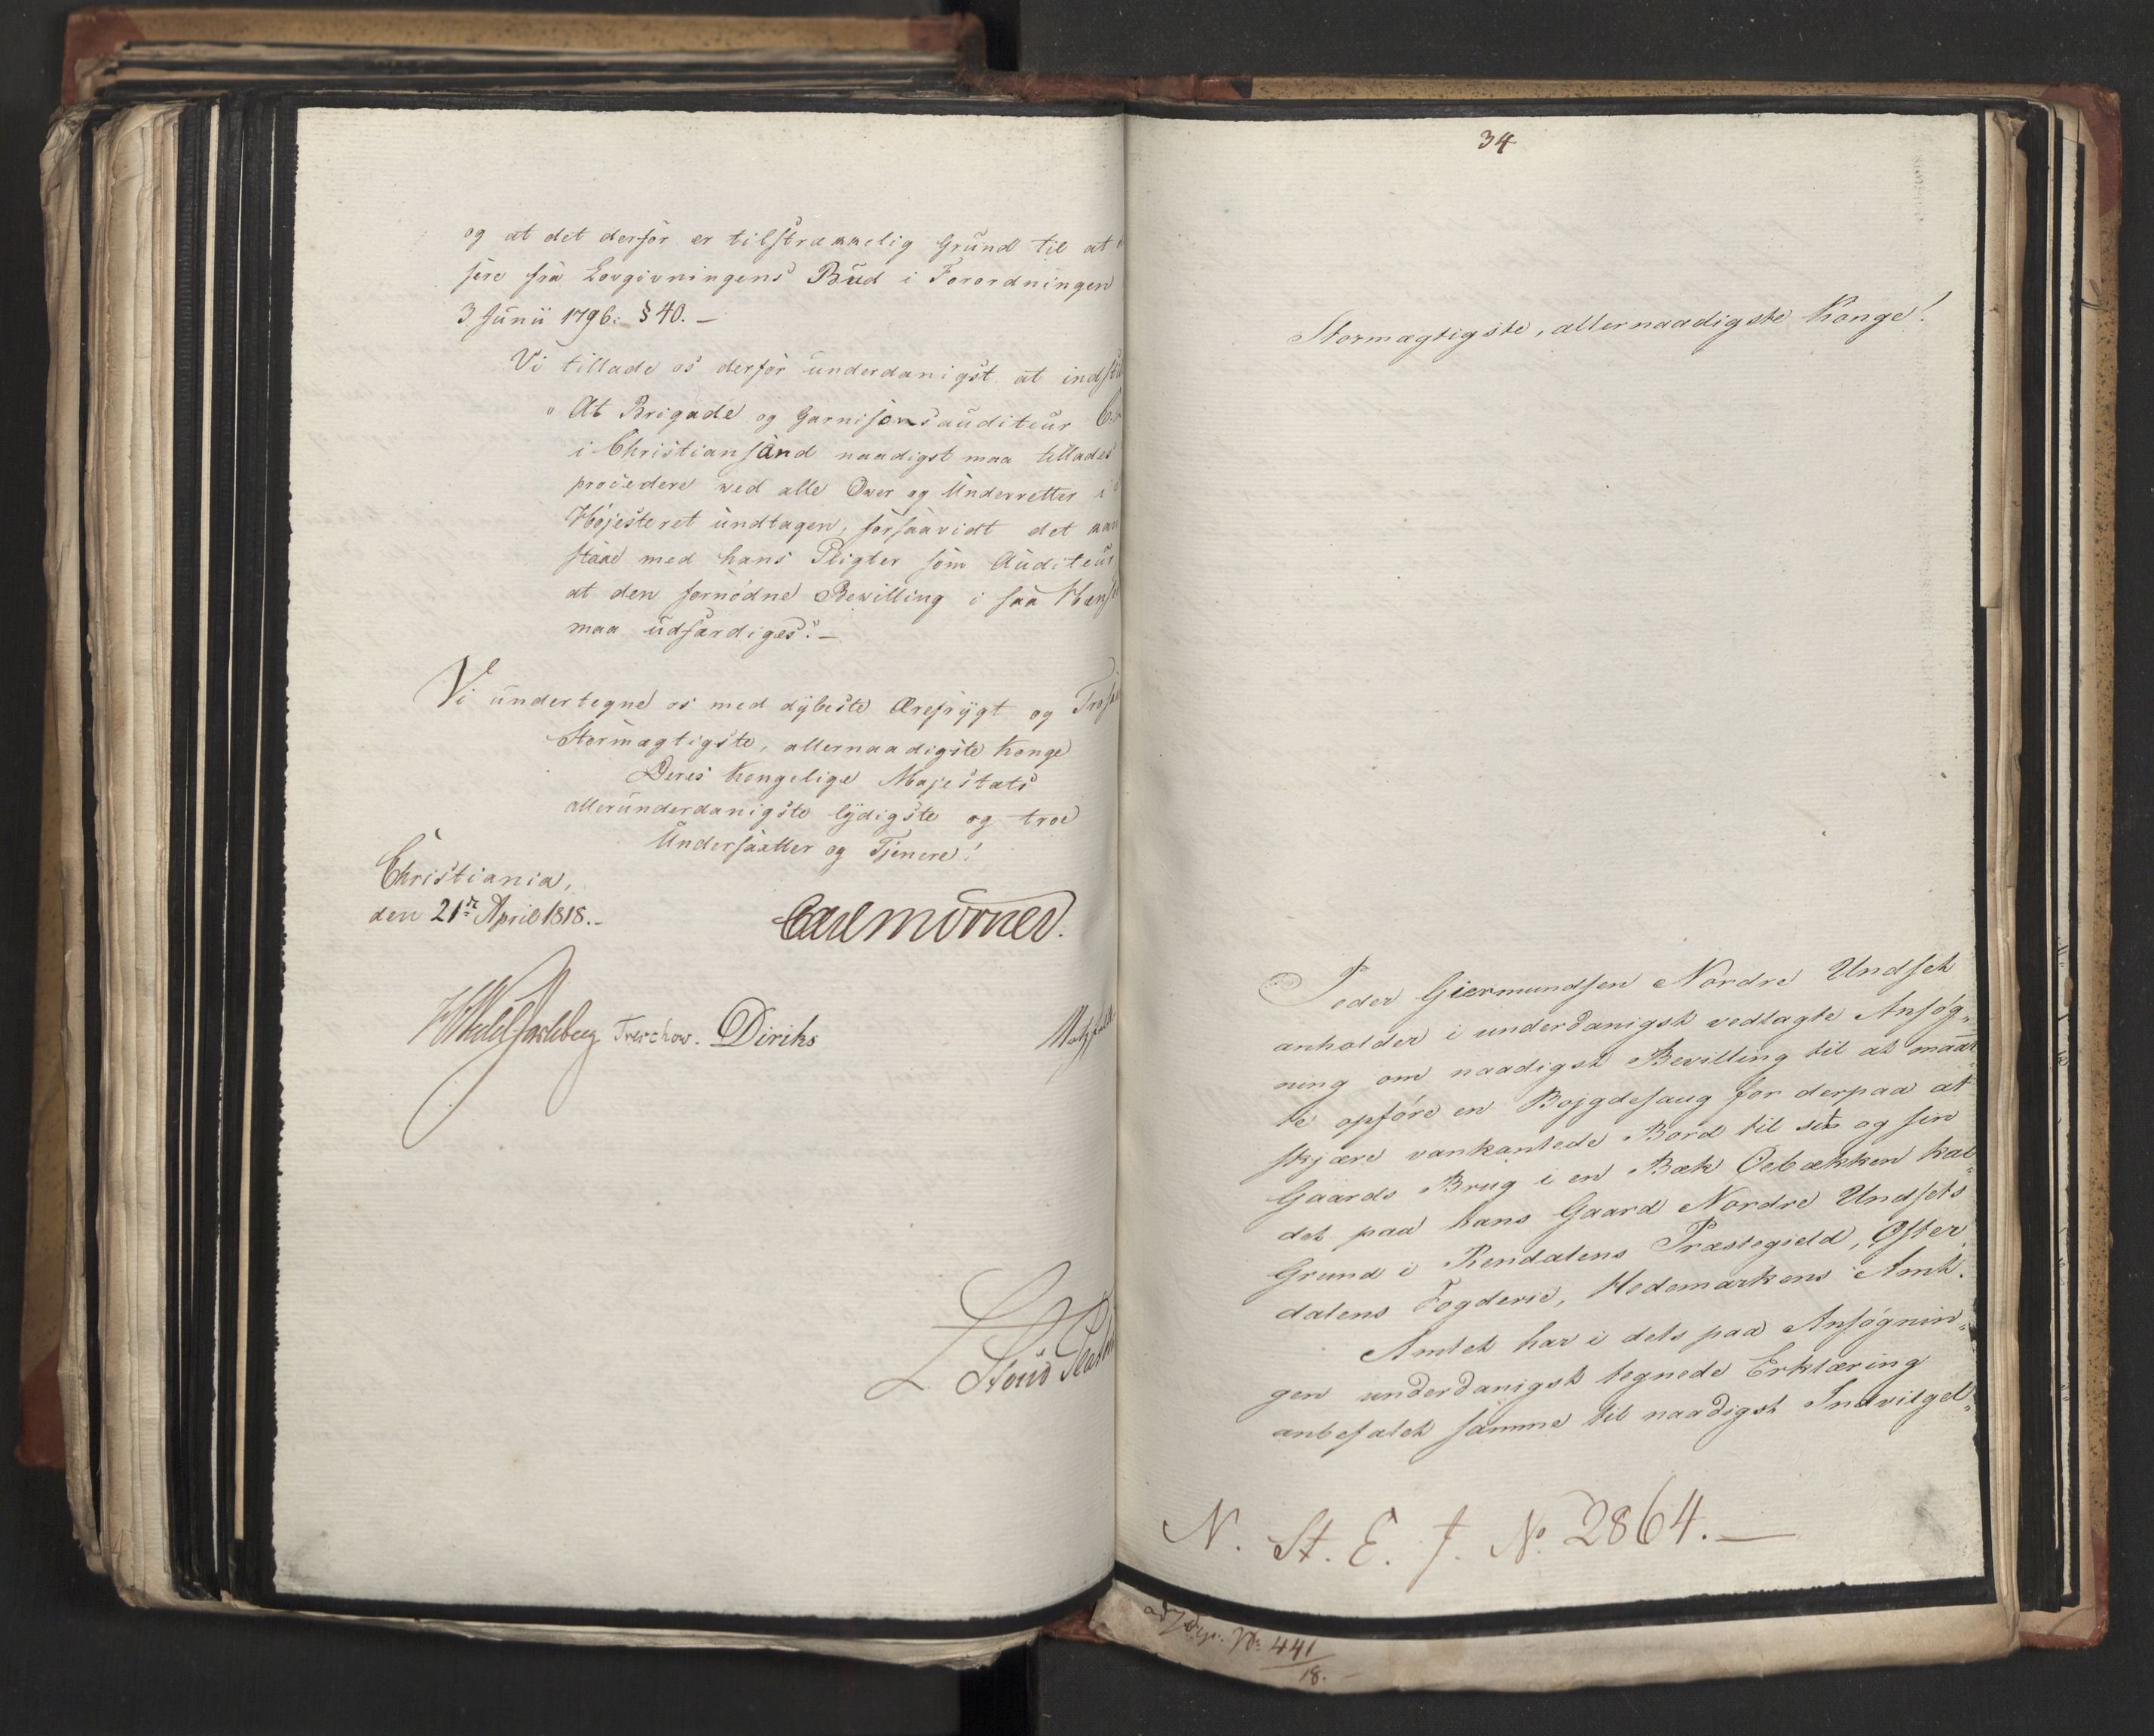 og at det derfor er tilstrækkelig Grund til at
fere fra Lovgivningens Bud i Forordningen
3 Junii 1796. § 40. –
Vi tillade os derfor underdanigst at indstil
"At Brigade og Garnisonsauditeur
i Christiansand naadigst maa tillades
procedere ved alle Over og Underretter i
Højesteret undtagen, forsaavidt det kan
staae med hans Pligter som Auditeur
at den fornødne Bevilling i saa Hens
maa udfærdiges." –
Vi undertegne os med dybeste Ærefrygt og Troska
Stormægtigste, allernaadigste Konge
Deres Kongelige Majestæts
allerunderdanigste lydigste og troe
Undersaatter og Tjenere!
Christiania,
den 21de April 1818. –
Carl Mörner.
HWedel Jarlsberg Treschow. Diriks Motzfeldt
L Stoud Plat
34
Stormægtigste, allernaadigste Konge!
Peder Giermundsen Nordre Undset
anholder i underdanigst vedlagte Ansøg„
ning om naadigst Bevilling til at maat„
te opføre en Bøjgdesaug for derpaa at
skjære vankantede Bord til sit og sin
Gaards Brug i en Bæk Oebækken kal„
det paa hans Gaard Nordre Undsets
Grund i Rendalens Præstegield, Øster„
dalens Fogderie, Hedemarkens Amt.
Amtet har i dets paa Ansøgnin„
gen underdanigst tegnede Erklæring
anbefalet samme til naadigst Indvilgel„
N. St. E. J. No 2864. —
ad J. Dep. No 441/18. –